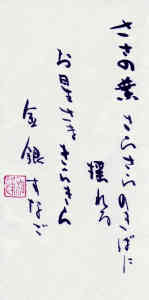 ささの葉さらさらのきばに
揺れる
お星さまきらきら
金銀すなご